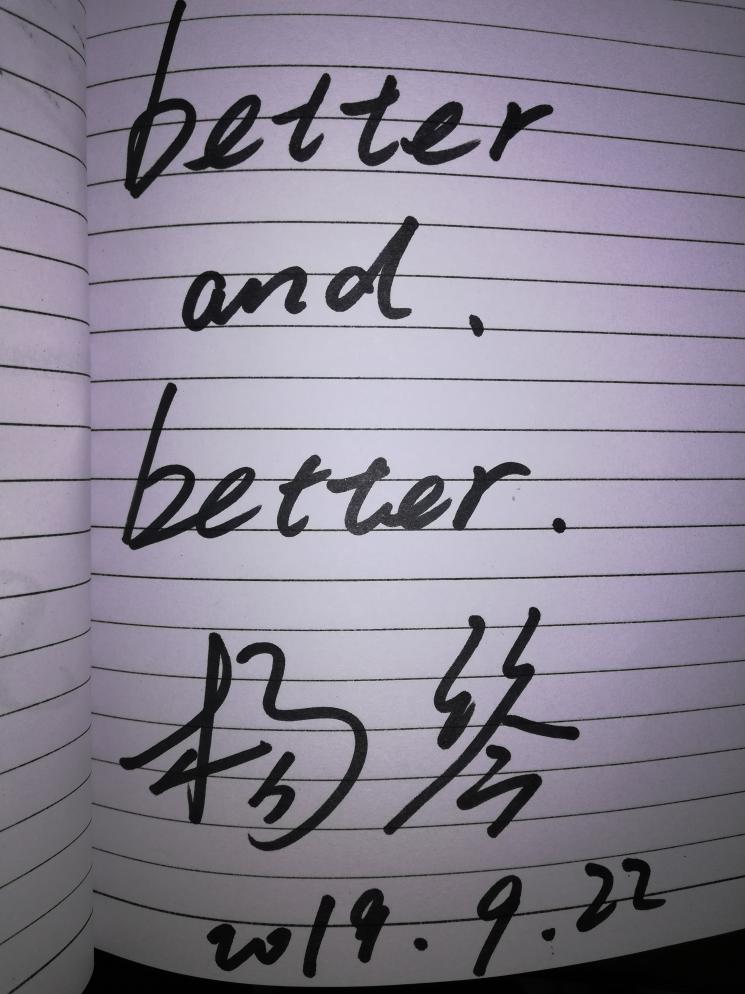 better
and.
better.
杨终
2019.9.22